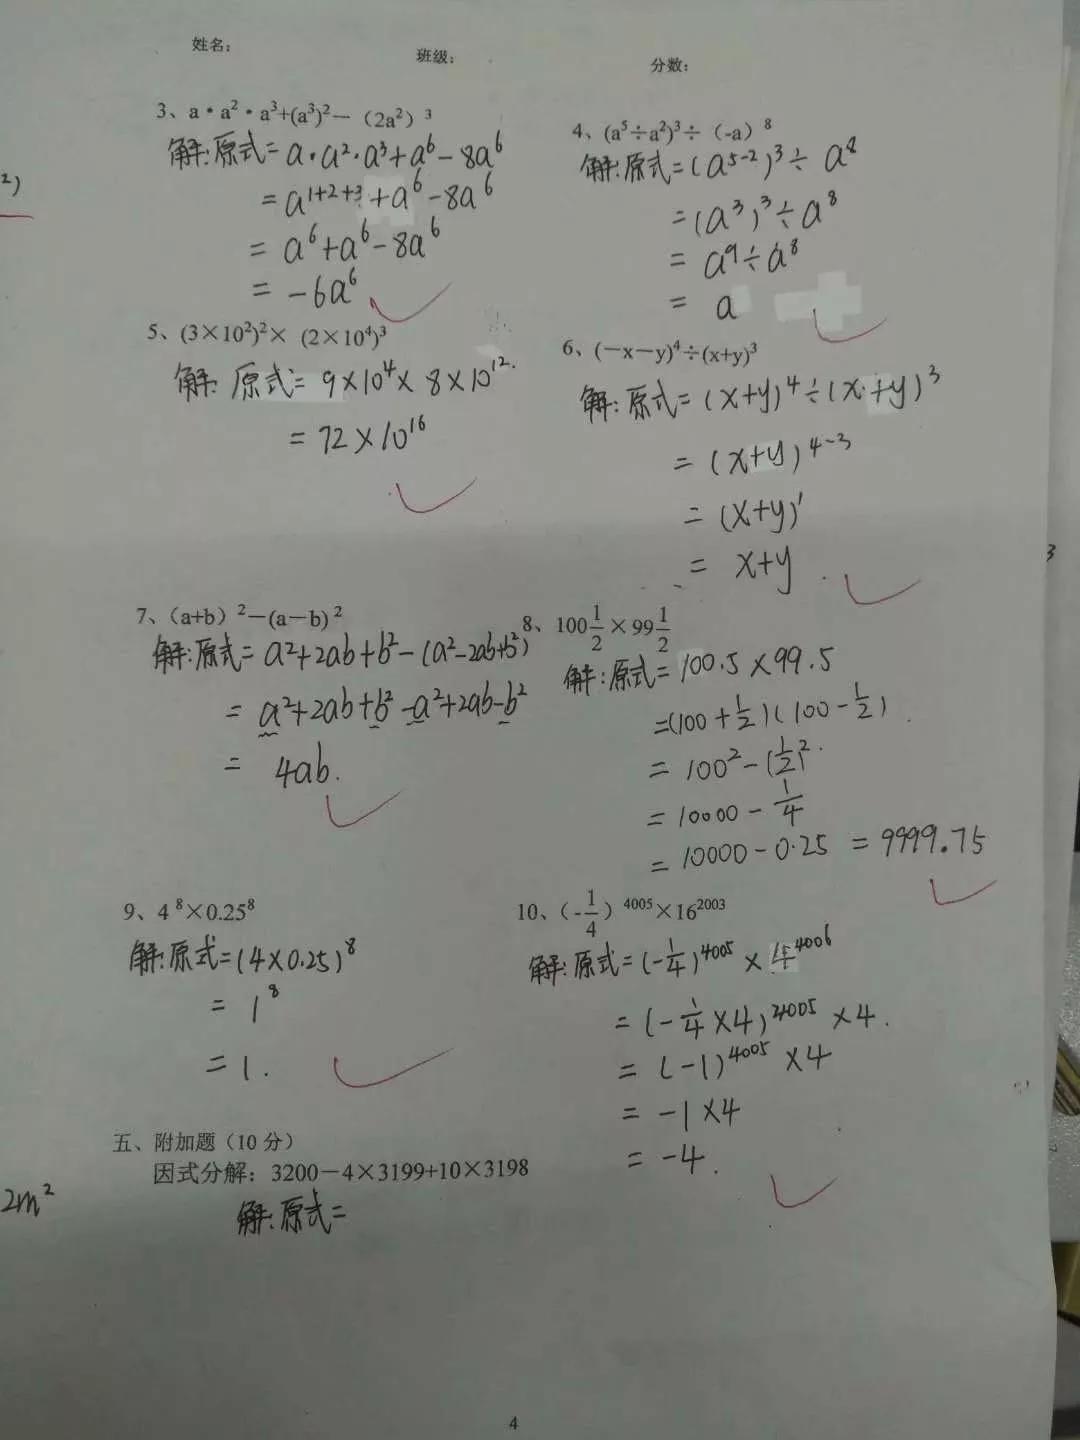 姓名：
班级：
分数：
3、a·a²·a³+(a³)²－（2a²）³
解:原式=a·a²·a³+a⁶-8a⁶
=a¹⁺²⁺³+a⁶-8a⁶
=a⁶+a⁶-8a⁶
=-6a⁶
4、(a⁵÷a²)³÷（-a）⁸
解:原式=(a⁵⁻²)³÷a⁸
=(a³)³÷a⁸
=a⁹÷a⁸
=a
5、(3×10²)²×（2×10⁴)³
解:原式=9×10⁴×8×10¹².
=72×10¹⁶
6、(－x－y)⁴÷(x+y)³
解:原式=(x+y)⁴÷(x+y)³
=(x+y)⁴⁻³
=(x+y)¹
=x+y
7、（a+b）²－(a－b)²
解:原式=a²+2ab+b²-(a²-2ab+b²)
=a²+2ab+b²-a²+2ab-b²
=4ab.
8、100½×99½
解:原式=100.5×99.5
=(100+½)(100-½)
=100²-(½)²
=10000-¼
=10000-0.25=9999.75
9、4⁸×0.25⁸
解:原式=(4×0.25)⁸
=1⁸
=1.
10、（-¼）⁴⁰⁰⁵×16²⁰⁰³
解:原式=(-¼)⁴⁰⁰⁵×4⁴⁰⁰⁶
=(-¼×4)⁴⁰⁰⁵×4.
=(-1)⁴⁰⁰⁵×4
=-1×4
=-4.
五、附加题（10 分）
因式分解：3200－4×3199+10×3198
解:原式=
2m²
4